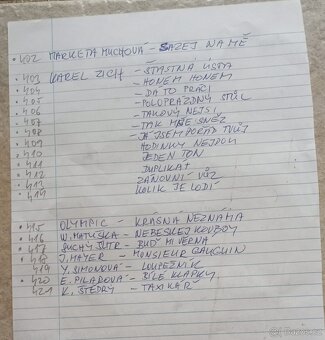 • 402 MARKETA MUCHOVÁ - SAZEJ NA MĚ
• 403 KAREL ZICH - ŠTASTNÁ ÚSTA
• 404 - HONEM HONEM
• 405 - DÁ TO PRÁCI
• 406 - POLOPRÁZDNÝ STŮL
• 407 - TAKOVÝ NEJSI
• 408 - TAK MĚ SNĚZ
• 409 - JÁ JSEM POŘÁD TVŮJ
• 410 HODINKY NEJDOU
• 411 JEDEN TON
• 412 DUPLIKÁT
• 413 ZÁNOVNÍ VŮZ
• 414 KOLIK JE LODÍ
• 415 OLYMPIC - KRÁSNÁ NEZNÁMÁ
• 416 W. MATUŠKA - NEBESKEJ KOVBOY
• 417 SUCHÝ ŠLITR - BUĎ MI VĚRNA
• 418 J. MAYER - MONSIEUR GAUGUIN
419 Y. SIMONOVÁ - LOUPEŽNÍK
• 420 E. PILAROVÁ - BÍLÉ KLAPKY
421 K. ŠTEDRÝ - TAXIKÁŘ